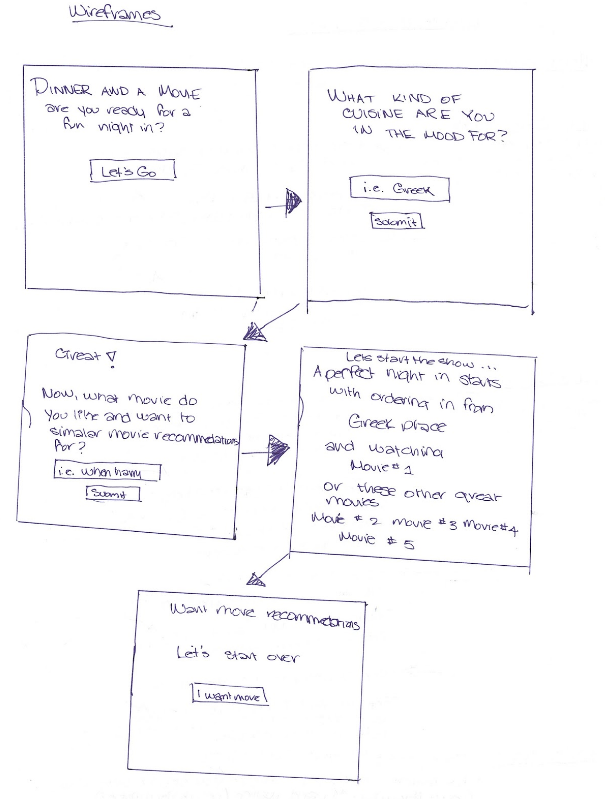 Wireframes
DINNER AND A MOVIE
are you ready for a
fun night in?
Let's Go
WHAT KIND OF
CUISINE ARE YOU
IN THE MOOD FOR?
i.e. Greek
Submit
Great!
Now, what movie do
you like and want to
similar movie recommedations
for?
i.e. when harry
Submit
Lets start the show ...
A perfect night in starts
with ordering in from
Greek place
and watching
Movie #1
or these other great
movies
Movie #2 movie #3 Movie #4
Movie #5
Want more recommedations
Let's start over
I want more